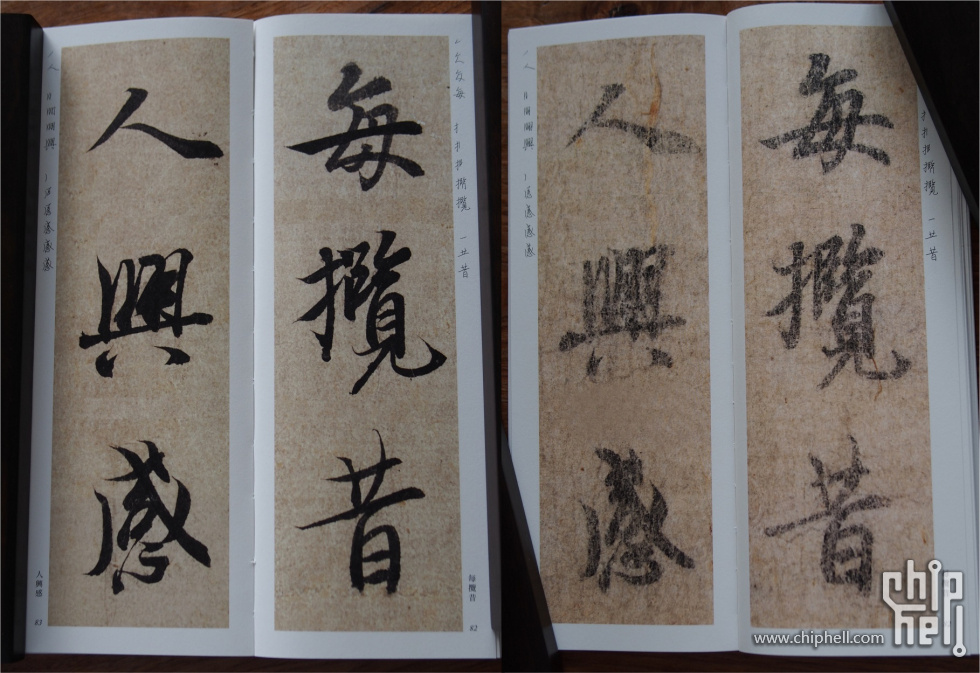 每攬昔
每攬昔
82
人興感
人興感
83
每攬昔
人興感
chip
hell
www.chiphell.com